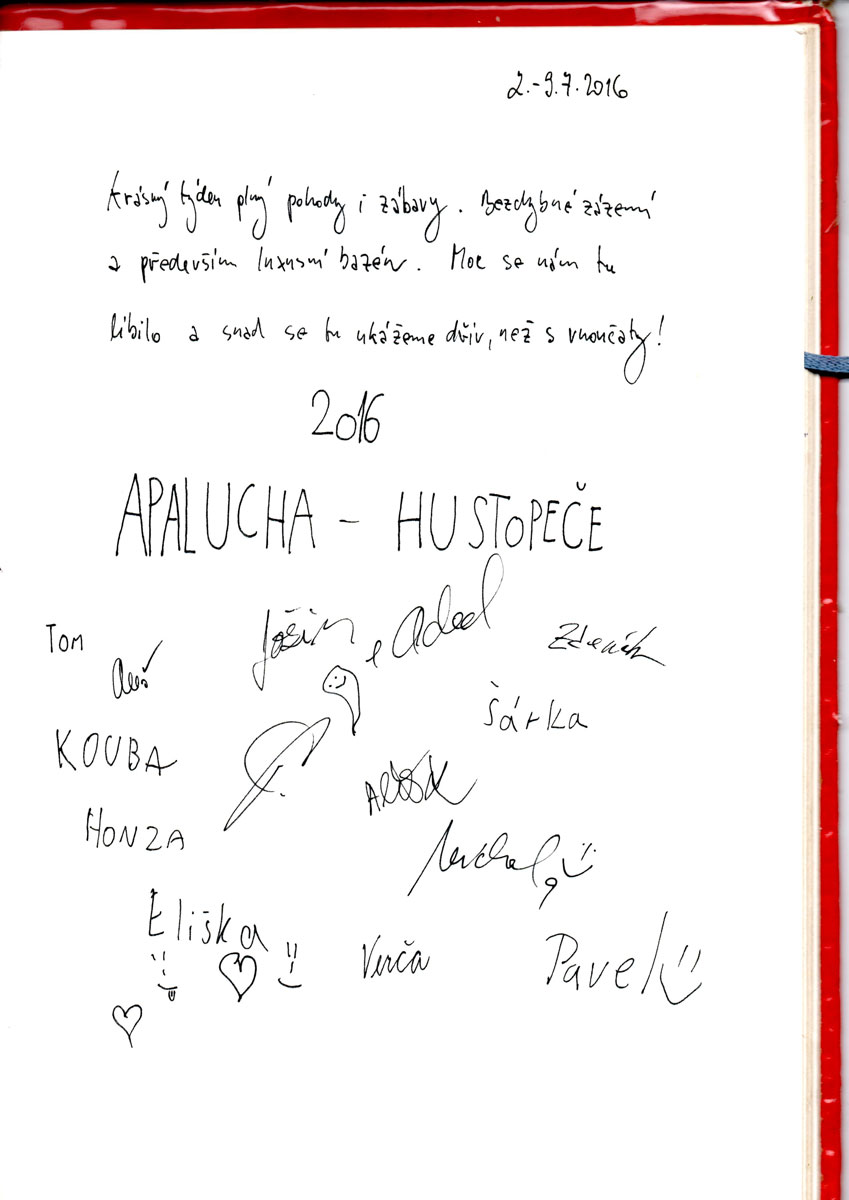 2.-9.7.2016
Krásný týden plný pohody i zábavy. Bezchybné zázemí
a především luxusní bazén. Moc se nám tu
líbilo a snad se tu ukážeme dřív, než s vnoučaty!
2016
APALUCHA - HUSTOPEČE
TOM
Zdeněk
Šárka
KOUBA
HONZA
Eliška
Verča
Pavel